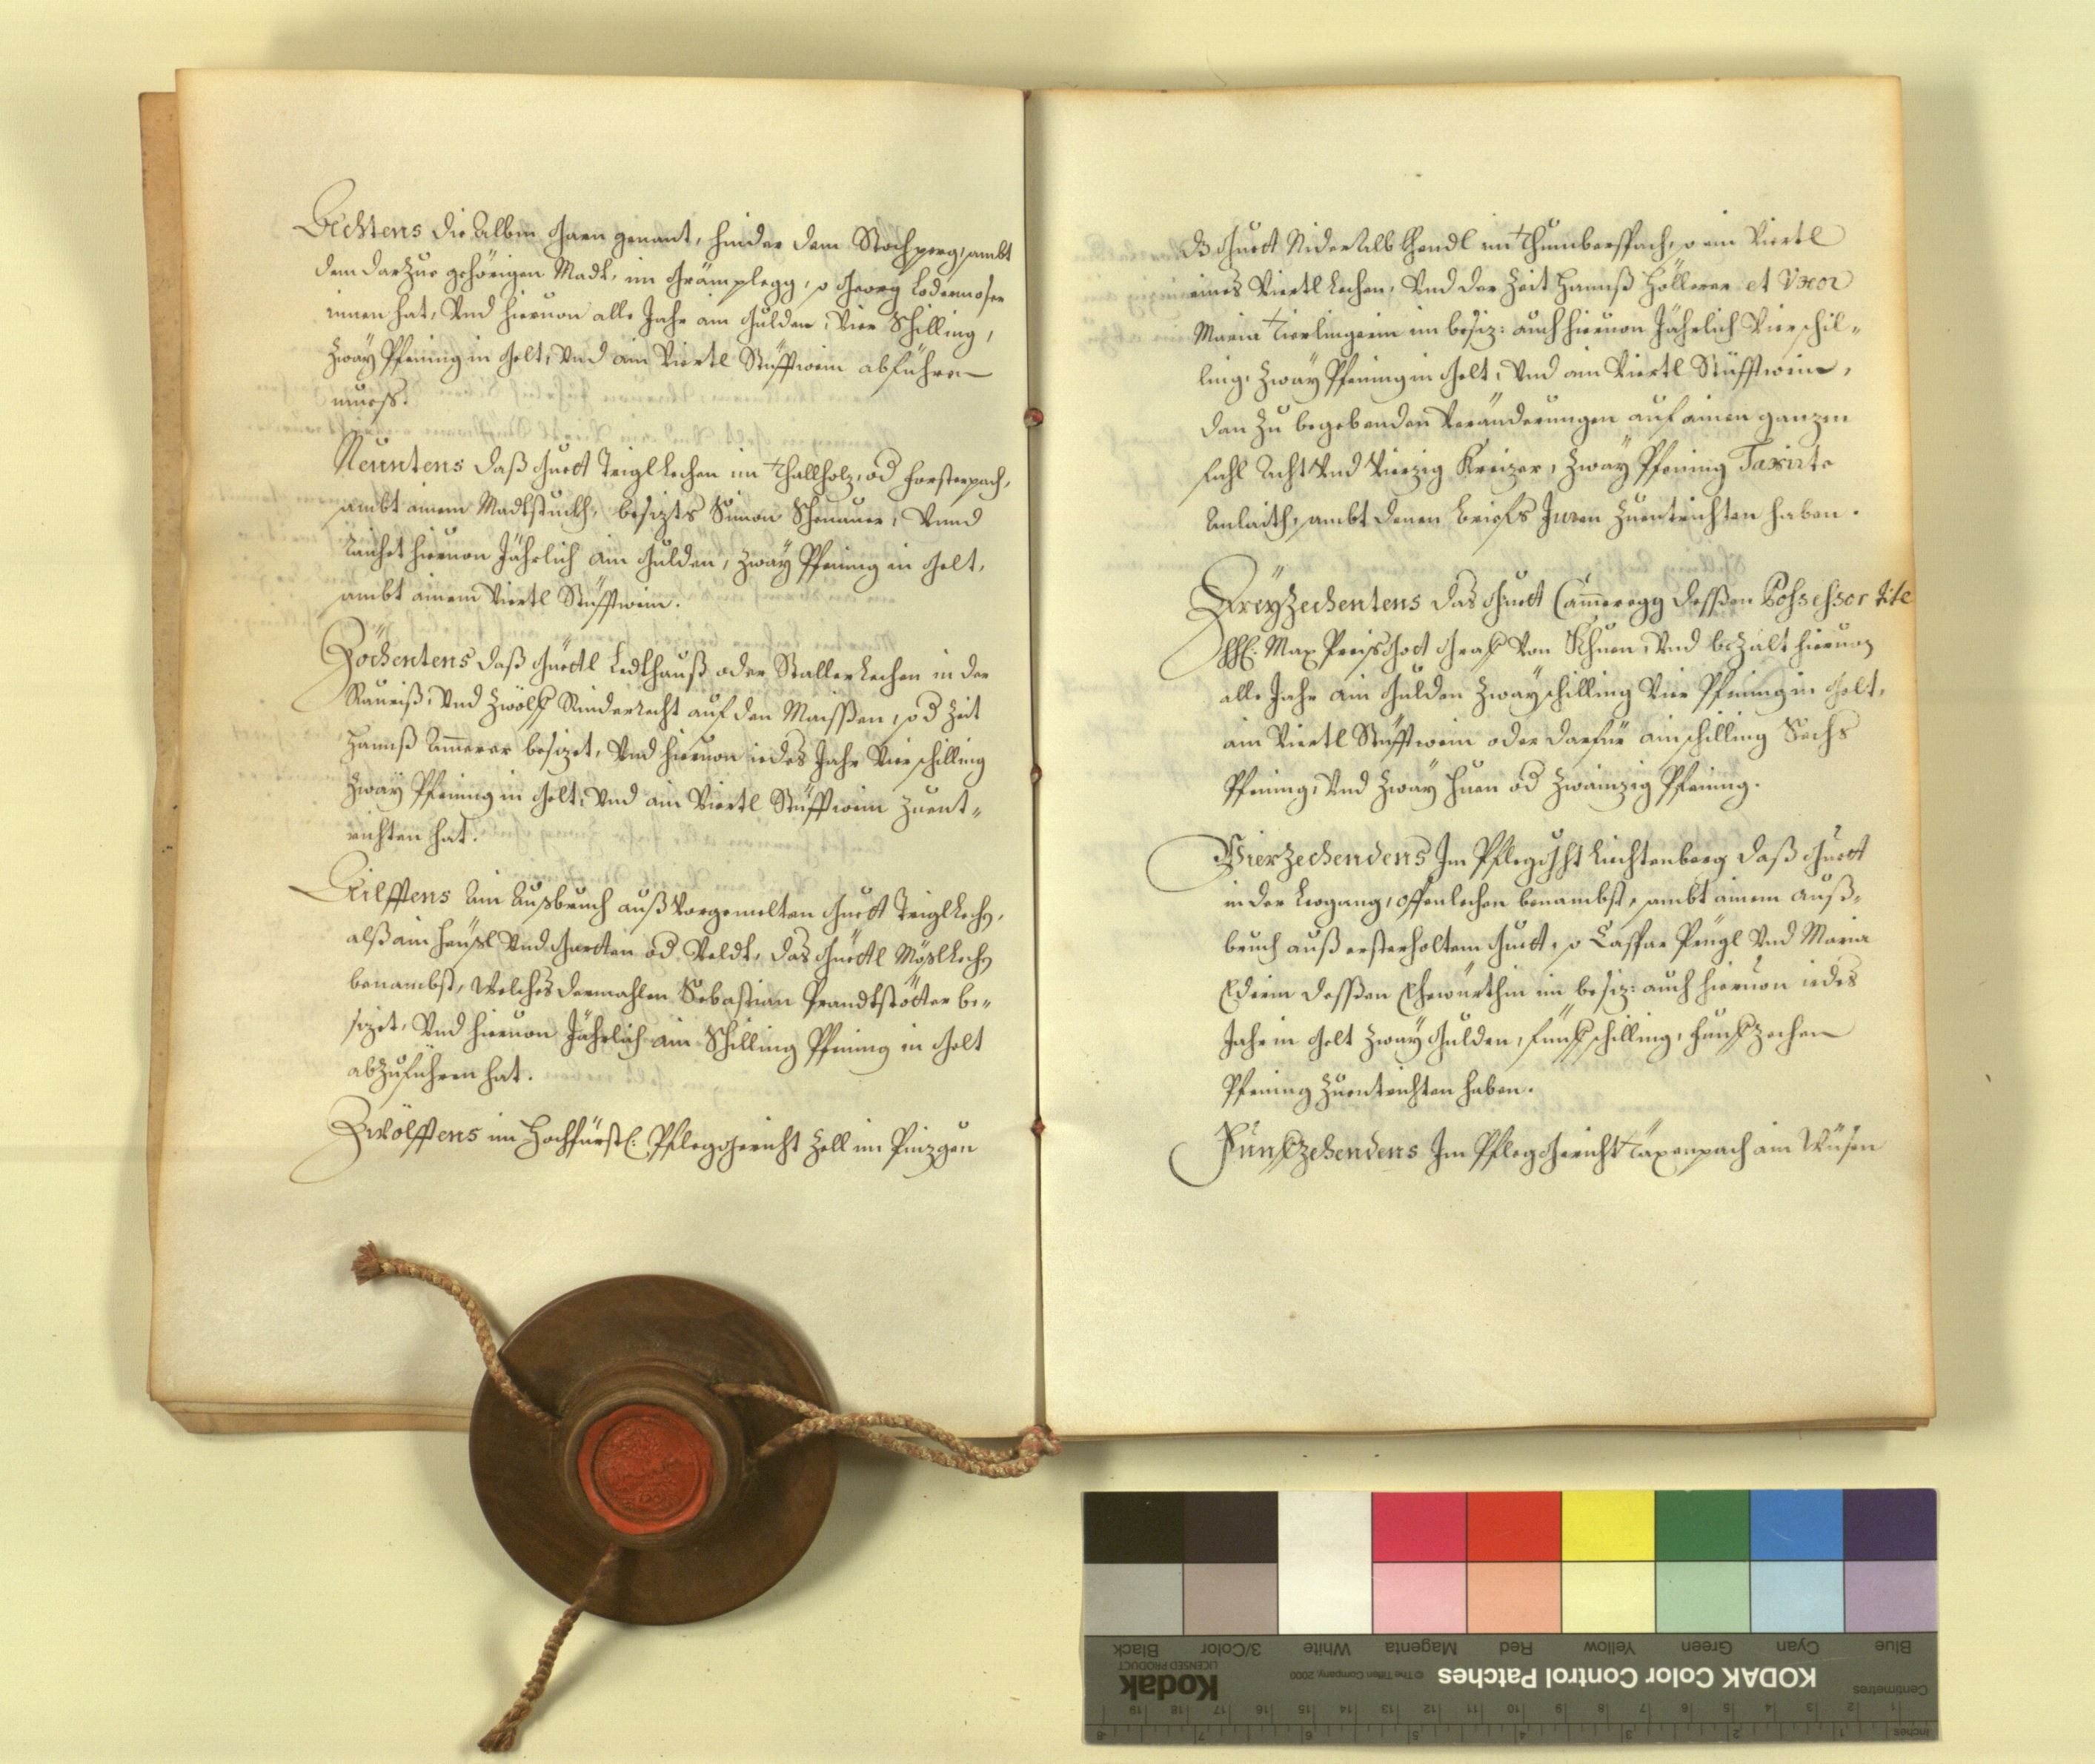 Achtens die Alben Gaen genant, hinder dem Stochperg, sambt
dem darzue gehörigen Madt, im Grämplegg, so Georg Lodermoser
innen hat, Vnd hieruon alle Jahr ain Gulden, Vier Schilling,
Zway Pfening in Gelt, Vnd ain Viertl Stüfftwein abführen
muess.
Neuntens daß Guett Teigl Lechen im Thallholz, od Forsterpach,
sambt ainem Madtstuckh, besizts Simon Schenauer, Vnnd
raicht hieruon Jährlich ain Gulden, Zway Pfening in Gelt,
sambt ainem Viertl Stüfftwein.
Zöchentens daß Güettl Ledthauß oder Staller Lechen in der
Rauriß, Vnd Zwölff Rinderrecht auf den Maißen, so d Zeit
Hannß Ammerer besizet, Vnd hieruon iedes Jahr Vier schilling
Zway Pfening in Gelt, Vnd ain Viertl Stüfftwein Zuent-
richten hat.
Ailfftens Ain Außbruch auß Vorgemelten Guett Teigl Lechen,
alß ain Heußl Vnd Gartten od Veldt, das Güettl Möslllechen
benambst, Welches dermahlen Sebastian Prandtstötter be-
sizet, Vnd hieruon Jährlich ain Schilling Pfening in Gelt
abzuführen hat.
Zwölfftens im Hochfürstl: Pfleggericht Zell im Pinzgeu
dz Guett Nider Alb Lhendl im Thumberspach, so ein Viertl
eines Viertl Lechen, Vnd der Zeit Hannß Höllerer et Uxor
Maria Tierlingerin im besiz: auch hieruon Jährlich Vier schil-
ling, Zway Pfening in Gelt, Vnd ain Viertl Stüfftwein,
dan Zu begebenden Veränderungen auf ainen ganzen
fahl Acht Vnd Vierzig Kreizer, Zway Pfening Taxirte
Anlaith, sambt denen Briefs Juren Zuentrichten haben.
Dreyzechentens das Guett Cameregg dessen Possessor Title
HH: Max Preisgott Graf Von Khuen, Vnd bezalt hieruon
alle Jahr ain Gulden Zway schilling Vier Pfening in Gelt,
ain Viertl Stüfftwein oder darfür ain schilling Sechs
Pfening, Vnd Zway Huen od Zwainzig Pfening.
Vierzechendens Im Pfleggricht Liechtenberg daß Guett
in der Leogang, Offenlechen benambst, sambt ainem auß-
bruch auß ersterholtem Guett, so Caspar Prugl Vnd Maria
Ederin dessen Ehewürthin im besiz: auch hieruon iedes
Jahr in Gelt Zway Gulden, fünf schilling, Funfzechen
Pfening Zuentrichten haben.
Fünfzechendens Im Pfleg Gericht Taxenpach ain Wüsen
Blue
Cyan
Green
Yellow
Red
Magenta
White
3/Color
Black
KODAK Color Control Patches
© The Tiffen Company, 2000
Kodak
LICENSED PRODUCT
Centimetres
Inches